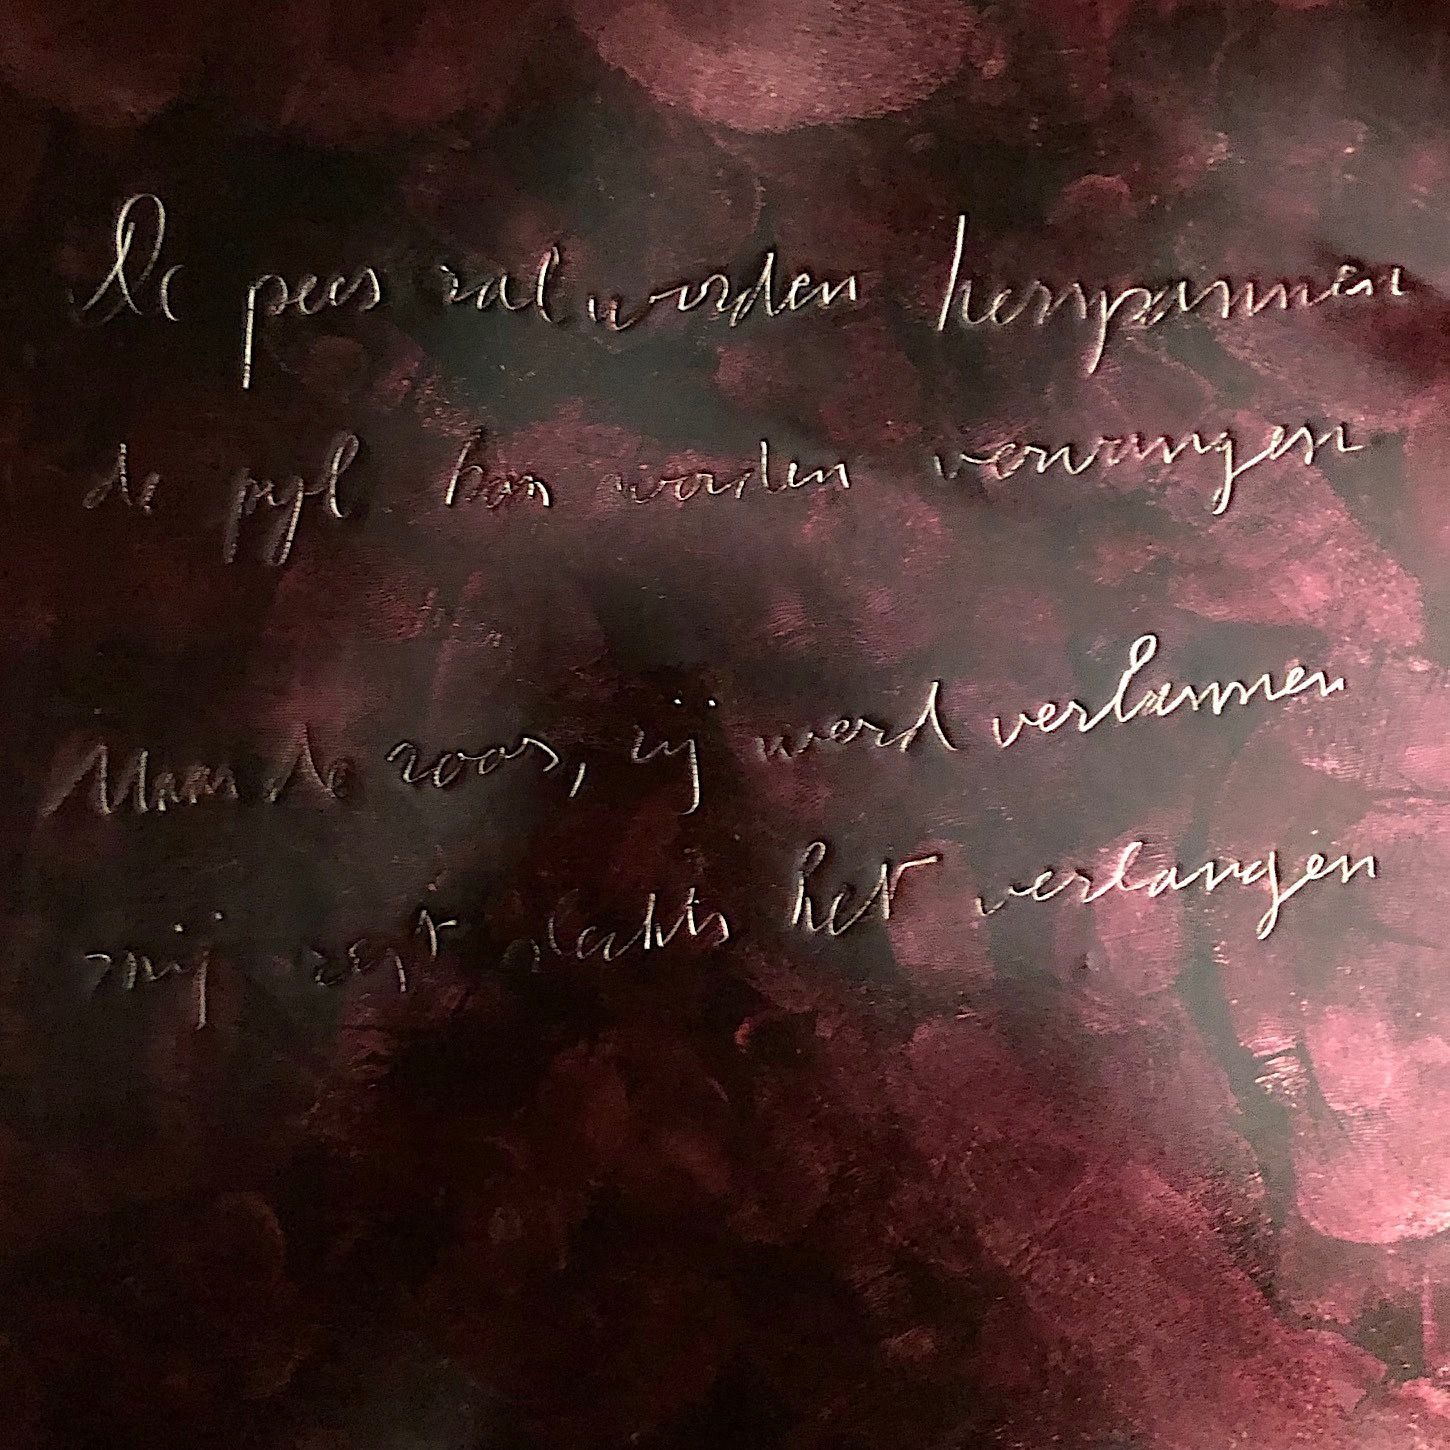 De pees zal worden herspannen
de pijl kan worden vervangen
Maar de roos, zij werd verbannen
mij rest slechts het verlangen